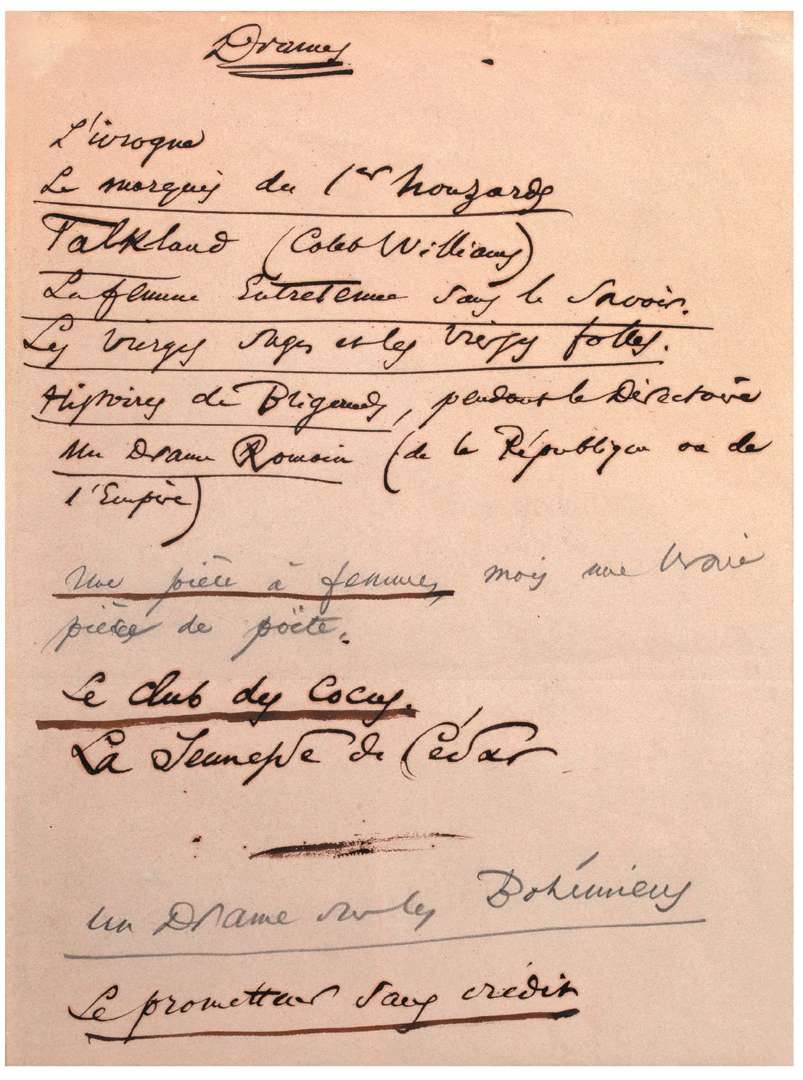 Drames
L'ivrogne
Le marquis du 1er houzards
Falkland (Caleb Williams)
La femme Entretenue sans le savoir.
Les vierges sages et les vierges folles.
Histoires de Brigands, pendant le Directoire
Un Drame Romain (de la République ou de
l'Empire)
Une pièce à femmes, mais une vraie
pièce de poëte.
Le club des cocus.
La Jeunesse de César
Un Drame sur les Bohémiens
Le prometteur sans crédit